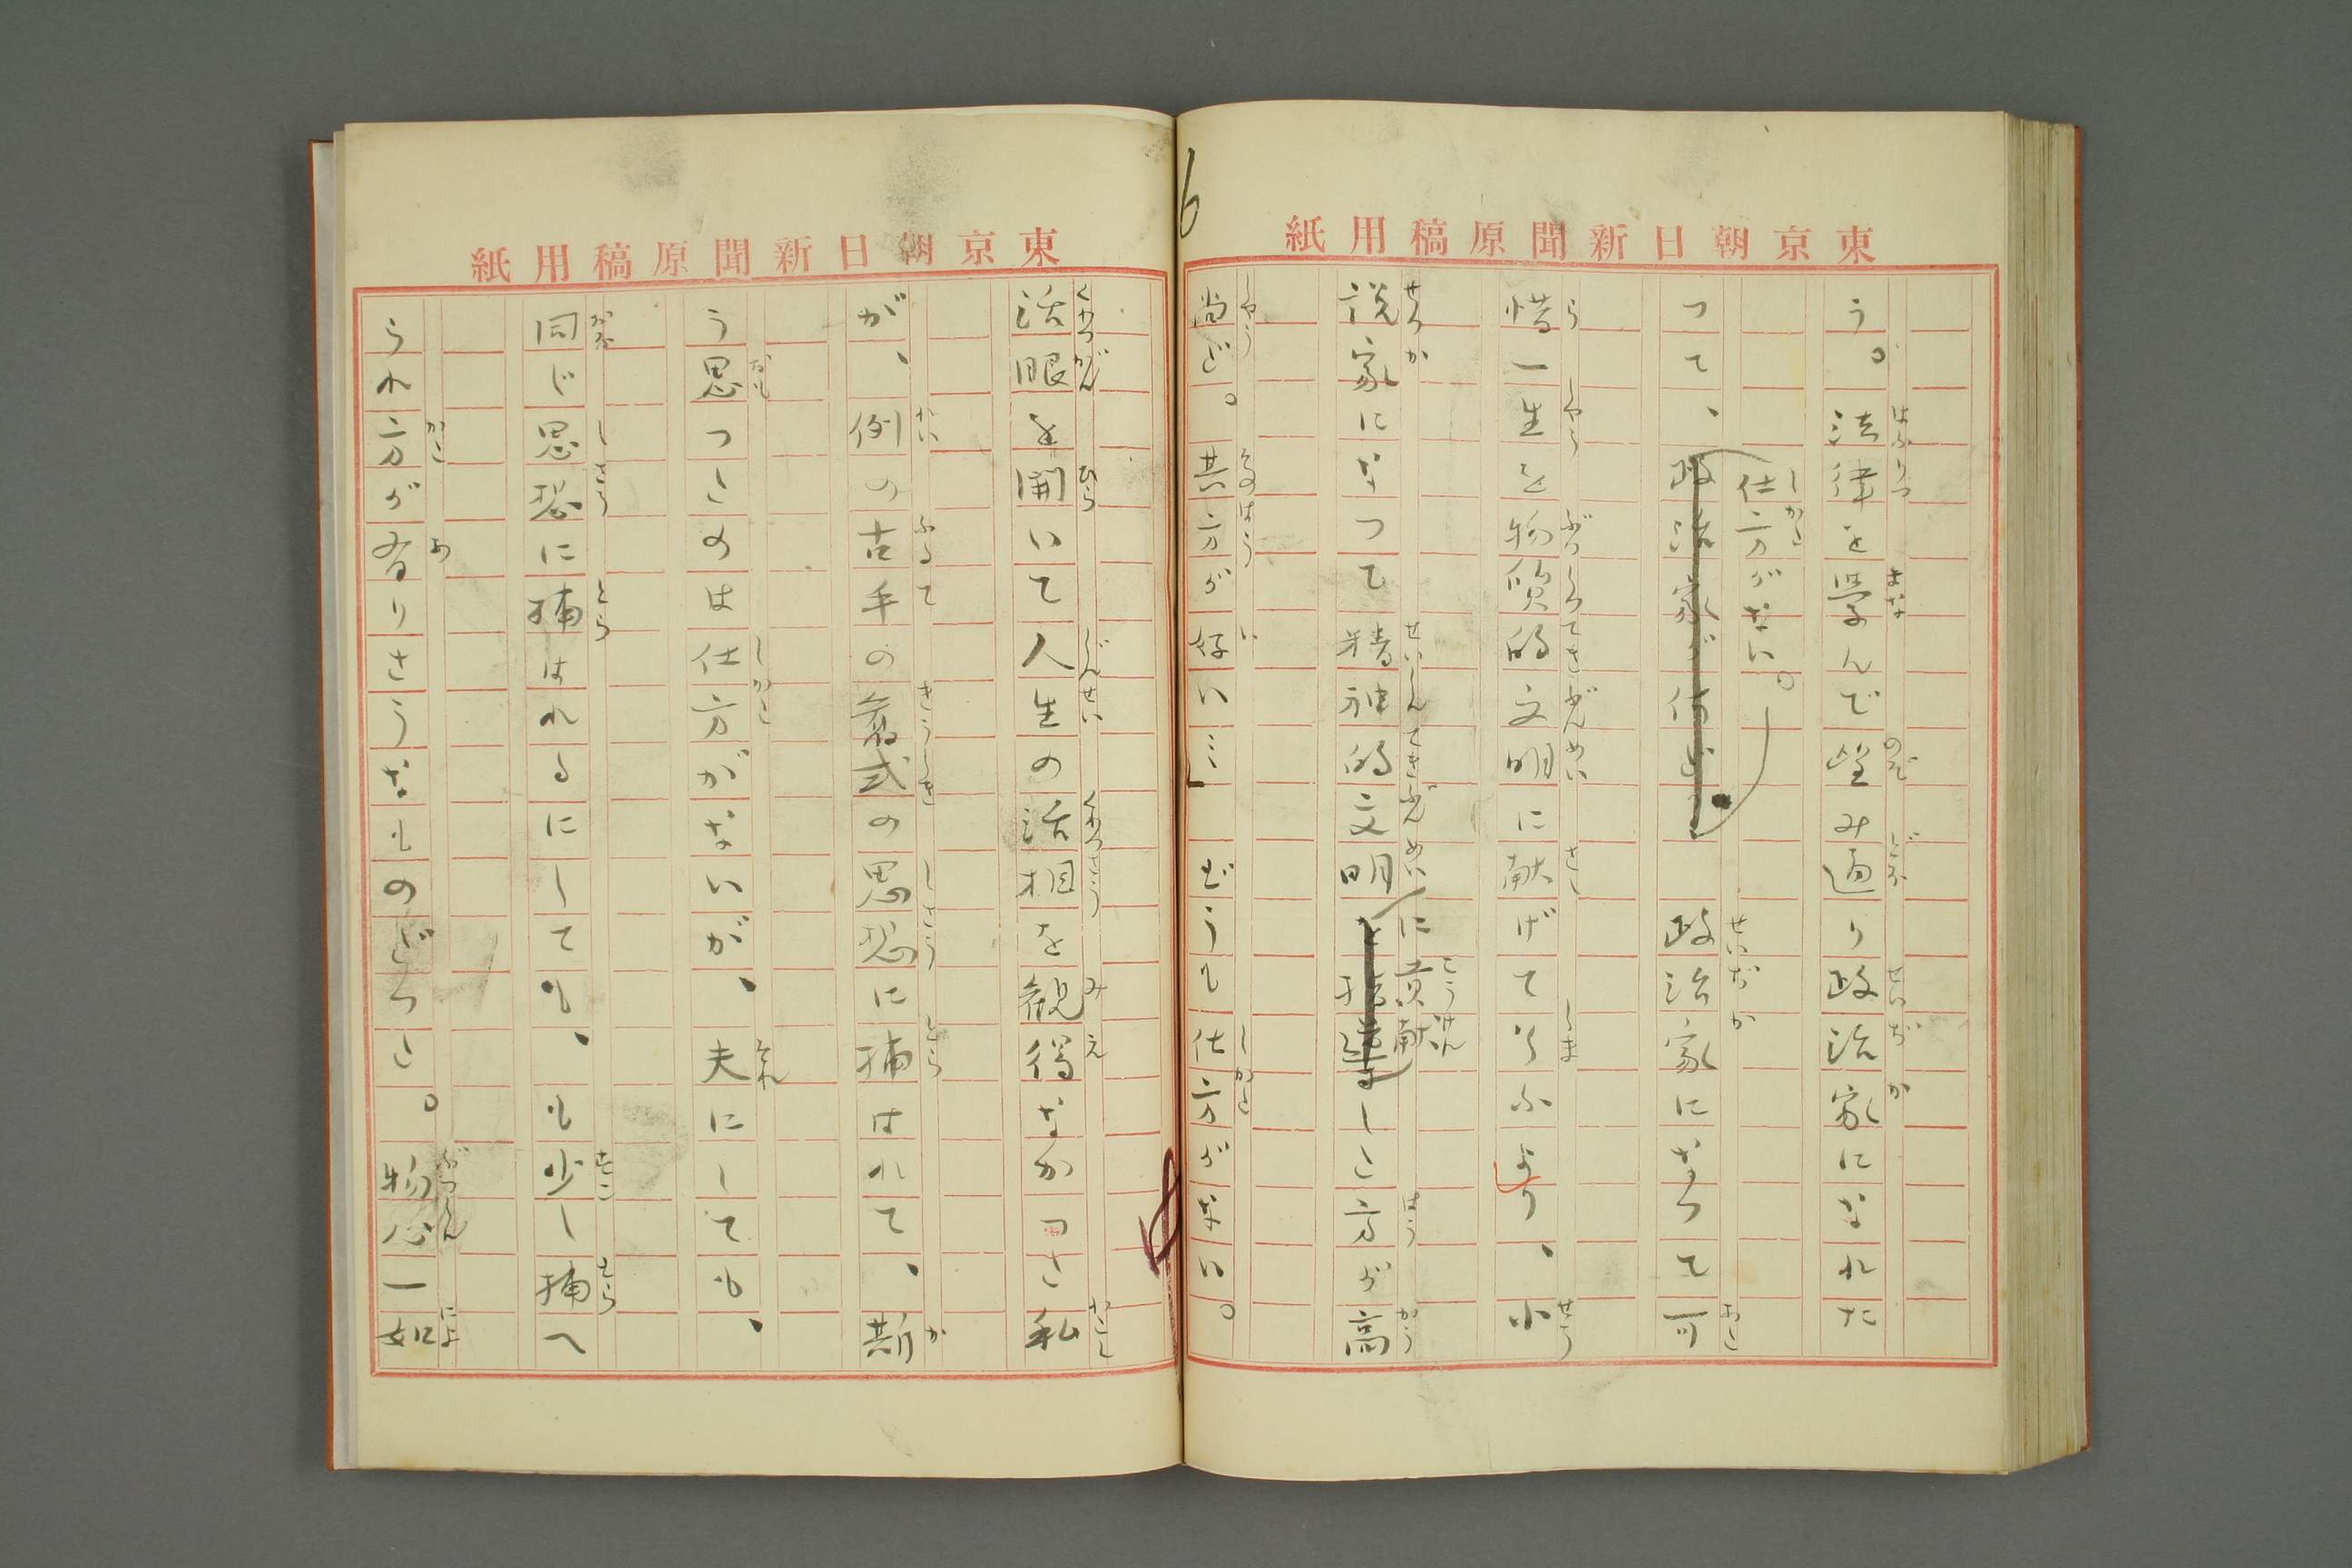 東京朝日新聞原稿用紙
う。法律を学んで望み通り政治家になれた
つて、仕方がない。政治家になつて可
惜一生を物質的文明に献げて了ふより、小
説家になつて精神的文明に貢献した方が高
尚だ。其方が好い…どうも仕方がない。
6
東京朝日新聞原稿用紙
活眼を開いて人生の活相を観得なかつた私
が、例の古手の舊式の思想に捕はれて、斯
う思つたのは仕方がないが、夫にしても、
同じ思想に捕はれるにしても、も少し捕へ
られ方が有りさうなものだつた。物心一如